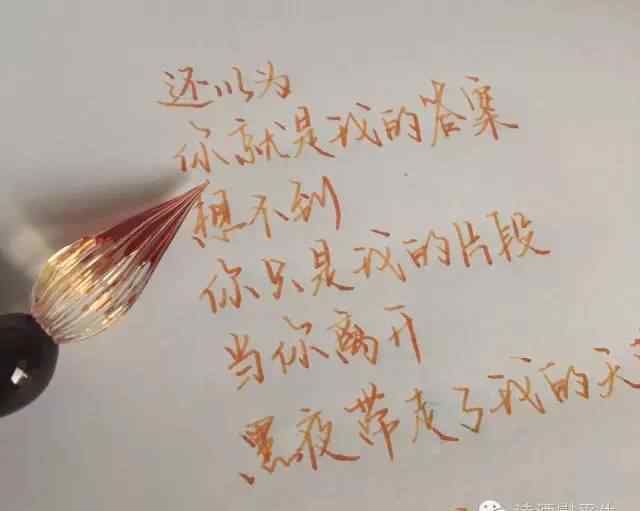 还以为
你就是我的答案
想不到
你只是我的片段
当你离开
黑夜带走了我的天